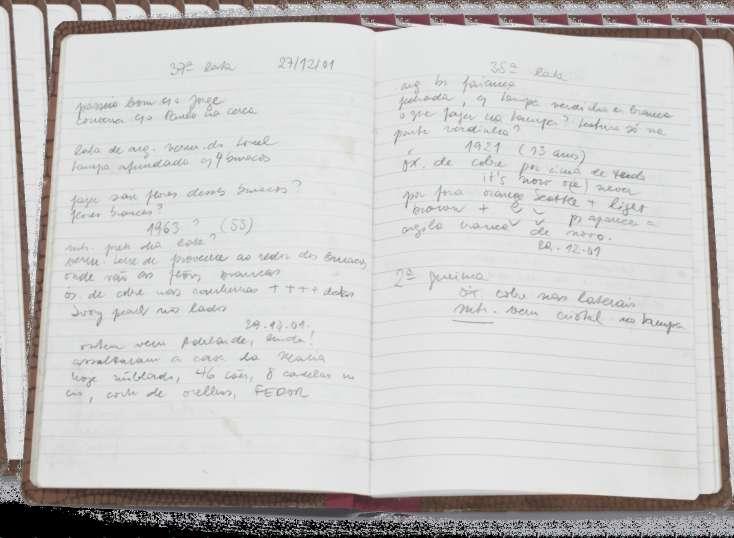 37ª lata 27/12/01
passeio bom c/o Jorge
conversa c/o Paulo na cerca
lata de arg. verm. do
tampa afundada c/ 4 buracos
fazer sair flores desses buracos?
flores brancas?
1963 ? (55)
base?
ao redor dos buracos,
onde vão as flores brancas
óx. de cobre nas ++++ dados
Ivory pearl no lados
29.12.01,
ontem veio Adelaide, linda!
assaltaram a casa da Maria
hoje nublado, 46 cães, 8 cadelas no
cio, corte de orelhas, FEDOR
35ª lata
arg br faiança
furada, c/ tampa verdinha e branca
o que fazer na tampa? textura só na
parte verdinha?
1921 (13 ans)
óx. de cobre por cima de tudo
it's now or never
por fora orange Scotta + light
brown + p/ aparecer a
argila branca de novo.
29.12.01
2ª queima
óx cobre nas laterais
mtr. bem cristal na tampa